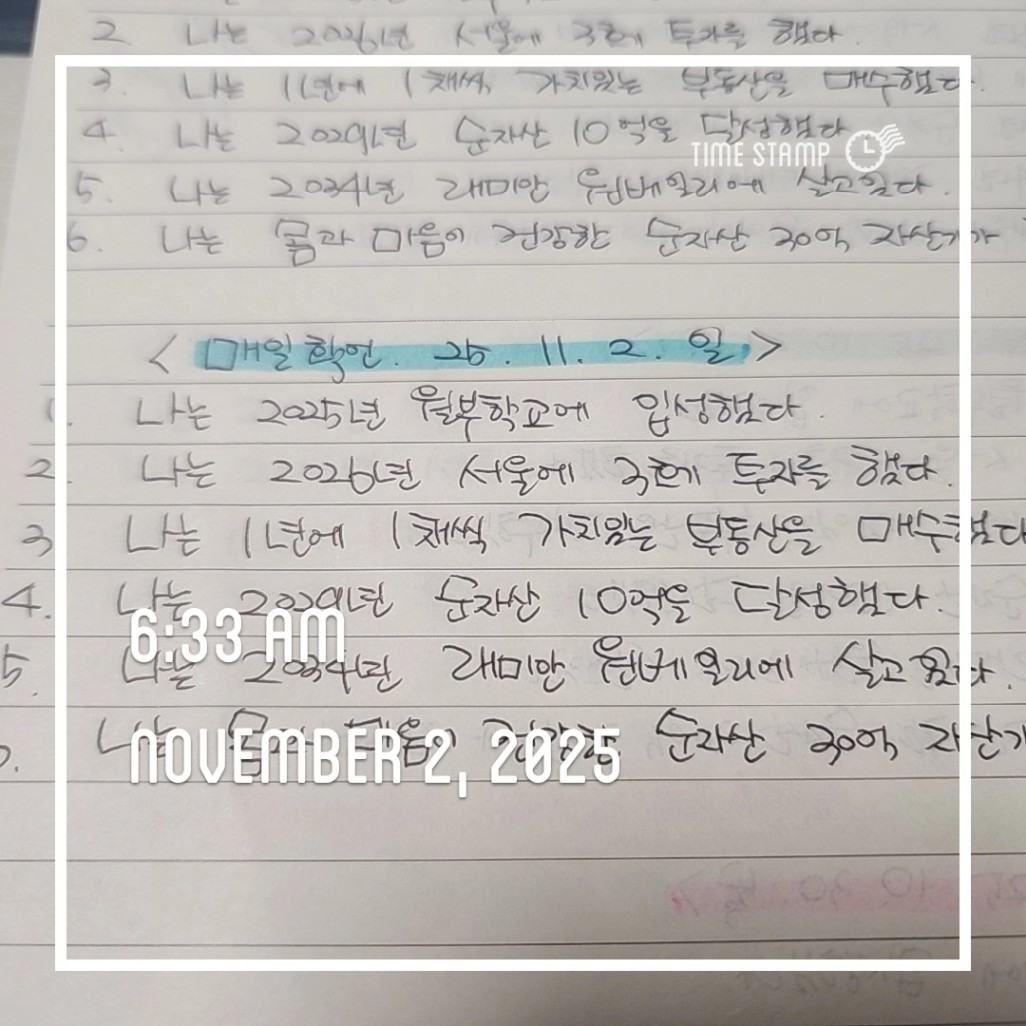 2. 나는 2026년 서울에 3호기 투자를 했다.
3. 나는 1년에 1채씩 가치있는 부동산을 매수했다.
4. 나는 2029년 순자산 10억을 달성했다
TIME STAMP
5. 나는 2034년 래미안 원베일리에 살고있다.
6. 나는 몸과 마음이 건강한 순자산 30억 자산가가
< 매일 확언. 25. 11. 2. 일>
1. 나는 2025년 월부학교에 입성했다.
2. 나는 2026년 서울에 3호기 투자를 했다.
3 나는 1년에 1채씩 가치있는 부동산을 매수했다
4. 나는 2029년 순자산 10억을 달성했다.
6:33 AM
5. 나는 2034년 래미안 원베일리에 살고 있다.
나는 몸과 마음이 건강한 순자산 30억 자산가
NOVEMBER 2, 2025